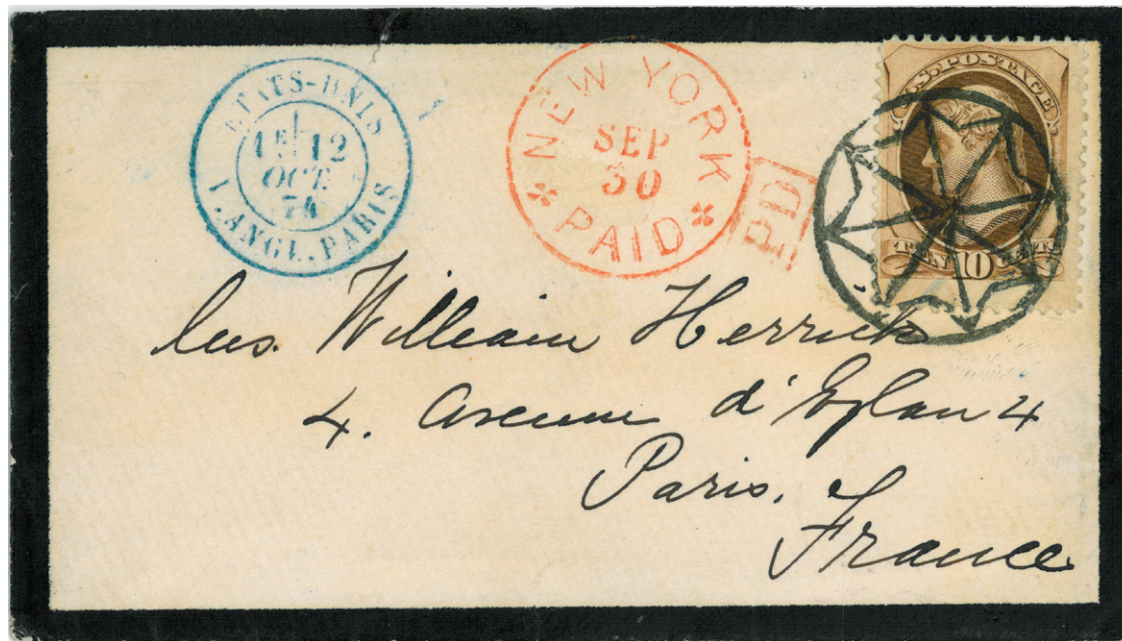 ETATS-UNIS
1E 12
OCT.
74
V.ANGL.PARIS
NEW YORK
SEP
30
PAID
PD
U.S. POSTAGE
TEN 10 CENTS
William Herrick
4. Avenue d'Eylau 4
Paris.
France